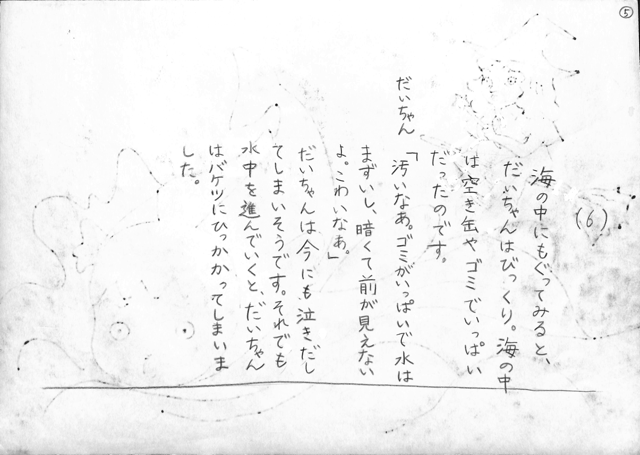 ⑤
(6)
海の中にもぐってみると、
だいちゃんはびっくり。海の中
は空き缶やゴミでいっぱい
だったのです。
だいちゃん「汚いなあ。ゴミがいっぱいで水は
まずいし、暗くて前が見えない
よ。こわいなぁ。」
だいちゃんは今にも泣きだし
てしまいそうです。それでも
水中を進んでいくと、だいちゃん
はバケツにひっかかってしまいま
した。